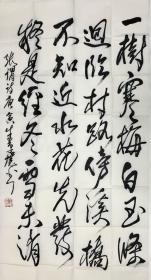 一樹寒梅白玉條
迴臨村路傍溪橋
不知近水花先發
疑是經冬雪未消
張謂詩庚寅